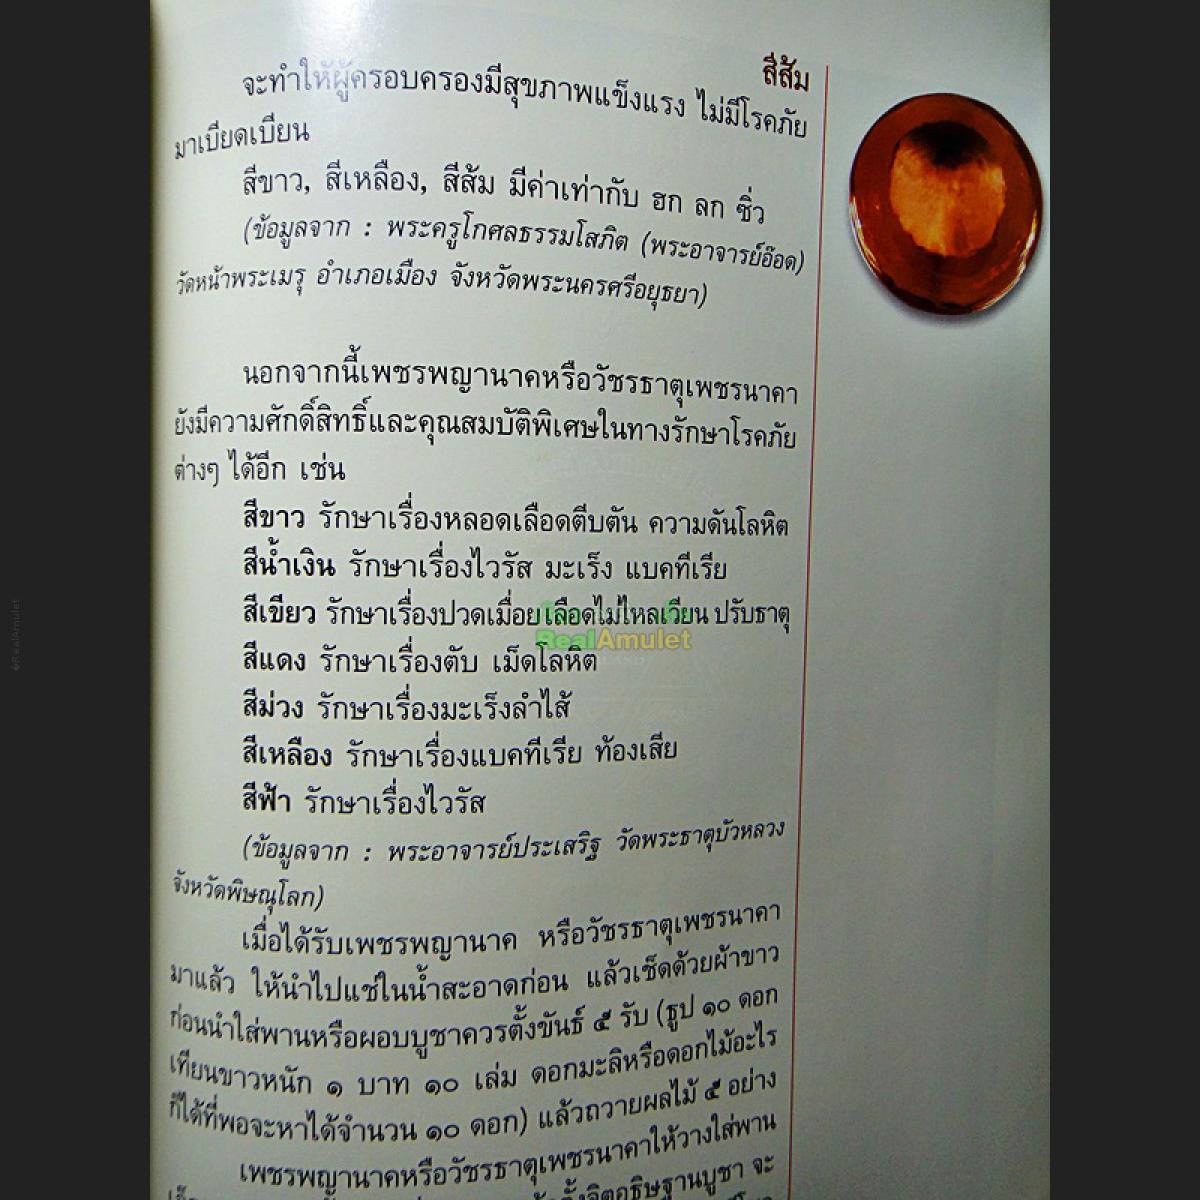 สีส้ม
จะทำให้ผู้ครอบครองมีสุขภาพแข็งแรง ไม่มีโรคภัย
มาเบียดเบียน
สีขาว, สีเหลือง, สีส้ม มีค่าเท่ากับ ฮก ลก ซิ่ว
(ข้อมูลจาก : พระครูโกศลธรรมโสภิต (พระอาจารย์อ๊อด)
วัดหน้าพระเมรุ อำเภอเมือง จังหวัดพระนครศรีอยุธยา)
นอกจากนี้เพชรพญานาคหรือวัชรธาตุเพชรนาคา
ยังมีความศักดิ์สิทธิ์และคุณสมบัติพิเศษในทางรักษาโรคภัย
ต่างๆ ได้อีก เช่น
สีขาว รักษาเรื่องหลอดเลือดตีบตัน ความดันโลหิต
สีน้ำเงิน รักษาเรื่องไวรัส มะเร็ง แบคทีเรีย
สีเขียว รักษาเรื่องปวดเมื่อย เลือดไม่ไหลเวียน ปรับธาตุ
RealAmulet
สีแดง รักษาเรื่องตับ เม็ดโลหิต
สีม่วง รักษาเรื่องมะเร็งลำไส้
สีเหลือง รักษาเรื่องแบคทีเรีย ท้องเสีย
สีฟ้า รักษาเรื่องไวรัส
(ข้อมูลจาก : พระอาจารย์ประเสริฐ วัดพระธาตุบัวหลวง
จังหวัดพิษณุโลก)
เมื่อได้รับเพชรพญานาค หรือวัชรธาตุเพชรนาคา
มาแล้ว ให้นำไปแช่ในน้ำสะอาดก่อน แล้วเช็ดด้วยผ้าขาว
ก่อนนำใส่พานหรือผอบบูชาควรตั้งขันธ์ ๕ รับ (ธูป ๑๐ ดอก
เทียนขาวหนัก ๑ บาท ๑๐ เล่ม ดอกมะลิหรือดอกไม้อะไร
ก็ได้ที่พอจะหาได้จำนวน ๑๐ ดอก) แล้วถวายผลไม้ ๕ อย่าง
เพชรพญานาคหรือวัชรธาตุเพชรนาคาให้วางใส่พาน
ตั้งจิตอธิษฐานบูชา จะ
©RealAmulet